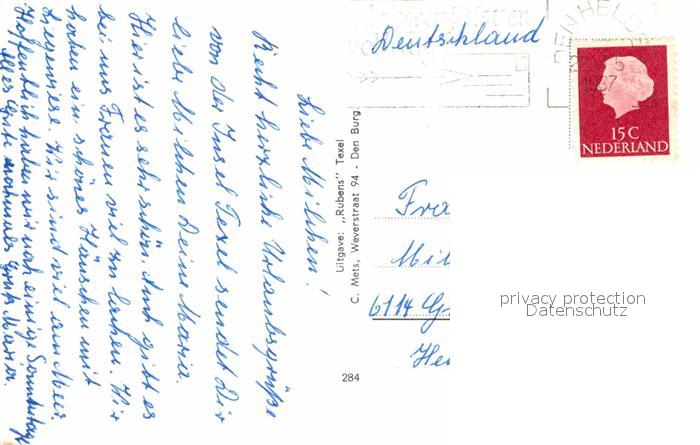 Liebe Milchen!
Recht herzliche Urlaubsgrüße
von der Insel Texel sendet Dir
liebe Milchen Deine Maria.
Hier ist es sehr schön. Auch gibt es
bei uns Frauen viel zu lachen. Wir
haben ein schönes Häuschen mit
Wir sind viel am Meer
Hoffentlich haben wir noch einige Sonnentage
Alles Gute nochmals Gruß Maria.
Uitgave: „Rubens" Texel
C. Mets, Weverstraat 94 - Den Burg
284
Deutschland
DEN HELDER
1967
15 C
NEDERLAND
Fra
Mil
6114 G
He
privacy protection
Datenschutz